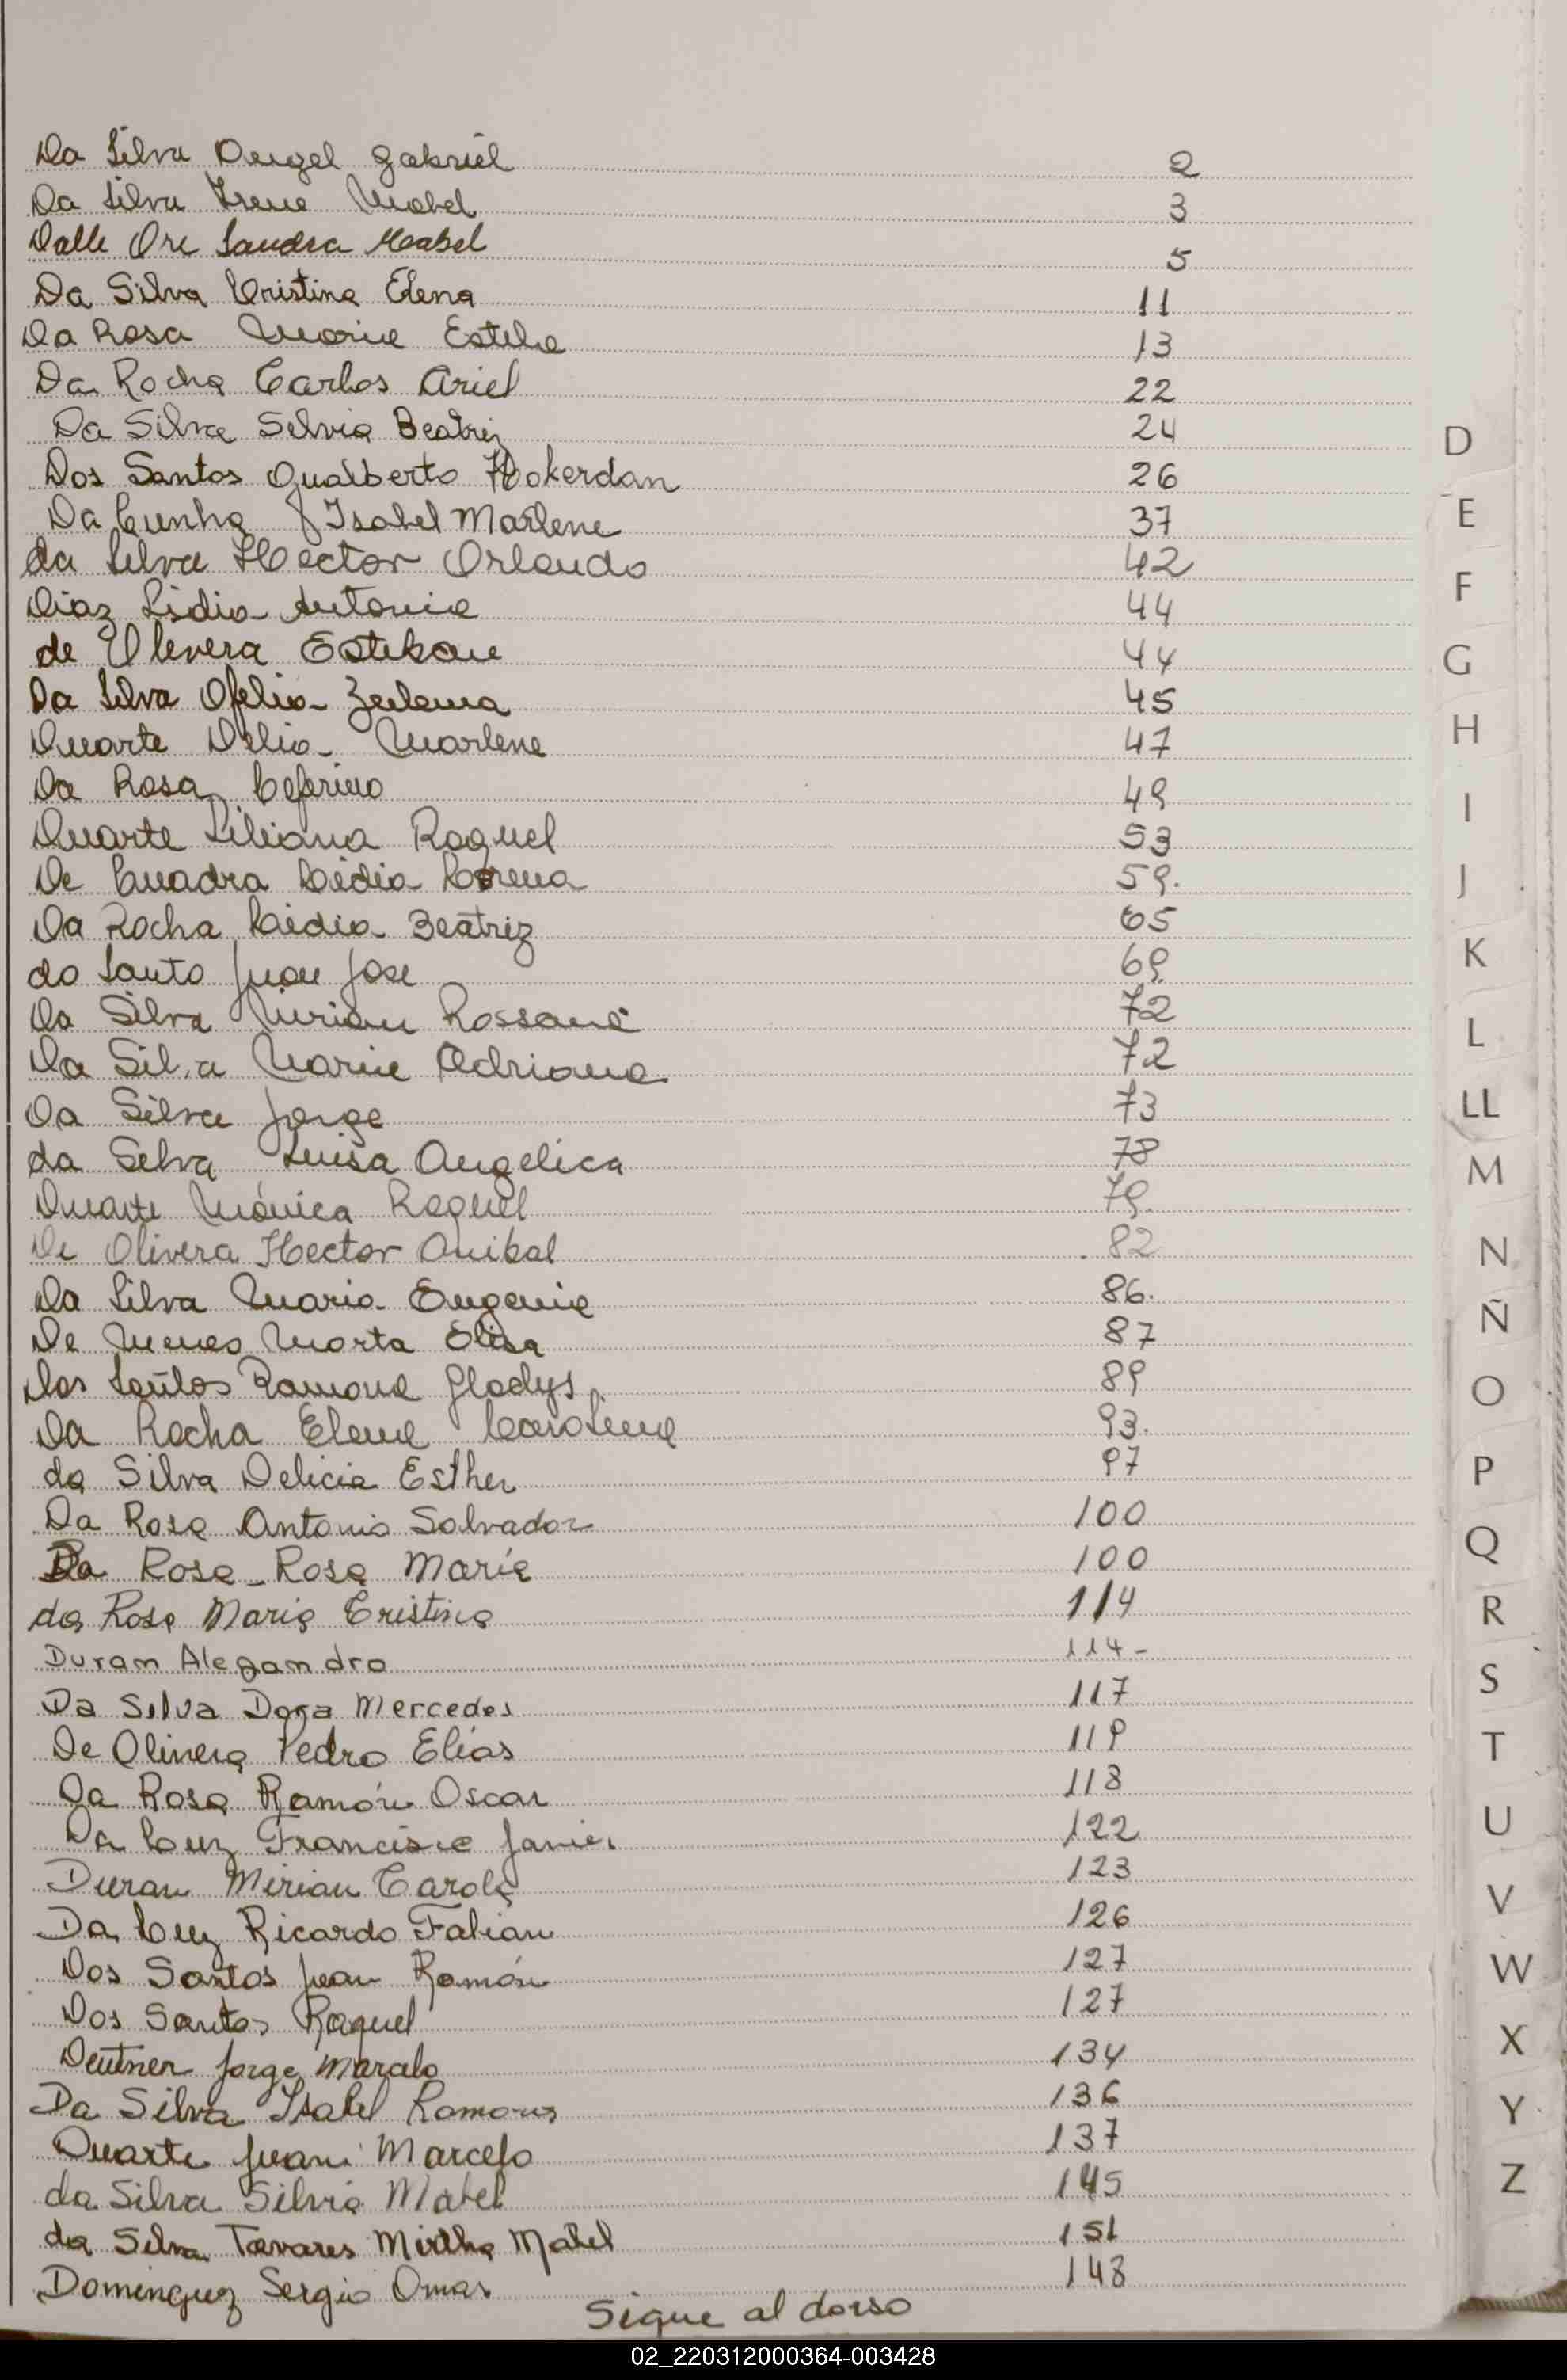 Da Silva Angel Gabriel 2
Da Silva Irene Mabel 3
Dalle Ore Sandra Mabel 5
Da Silva Cristina Elena 11
Da Rosa Maria Estela 13
Da Rocha Carlos Ariel 22
Da Silva Silvia Beatriz 24
Dos Santos Gualberto 26
Da Cunha Isabel Marlene 37
da Silva Hector Orlando 42
Diaz Lidia Antonia 44
de Olivera Esteban 44
Da Silva Ofelia Zulema 45
Duarte Delia Marlene 47
Da Rosa Ceferino 49
Duarte Liliana Raquel 53
De Cuadra Lidia Lorena 59.
Da Rocha Lidia Beatriz 65
do Santo Juan Jose 69.
Da Silva Mirian Rossana 72
Da Silva Maria Adriana 72
Da Silva Jorge 73
da Silva Luisa Angelica 78
Duarte Mónica Raquel 79.
De Olivera Hector Anibal 82
Da Silva Maria Eugenia 86.
De Menes Marta Elisa 87
Dos Santos Ramona Gladys 89
Da Rocha Elena Carolina 93.
da Silva Delicia Esther 97
Da Rosa Antonio Salvador 100
Da Rosa - Rosa María 100
da Rosa Maria Cristina 114
Duran Alegandro 114-
Da Silva Dora Mercedes 117
De Olivera Pedro Elías 119
Da Rosa Ramón Oscar 118
Da Luz Francisco Javier 122
Duran Mirian Carola 123
Da Luz Ricardo Fabian 126
Dos Santos Juan Ramón 127
Dos Santos Raquel 127
Deutner Jorge Marcelo 134
Da Silva Isabel Ramona 136
Duarte Juan Marcelo 137
da Silva Silvia Mabel 145
da Silva Tavares Mirtha Mabel 151
Dominguez Sergio Omar 148
Sigue al dorso
D
E
F
G
H
I
J
K
L
LL
M
N
Ñ
O
P
Q
R
S
T
U
V
W
X
Y
Z
02_220312000364-003428